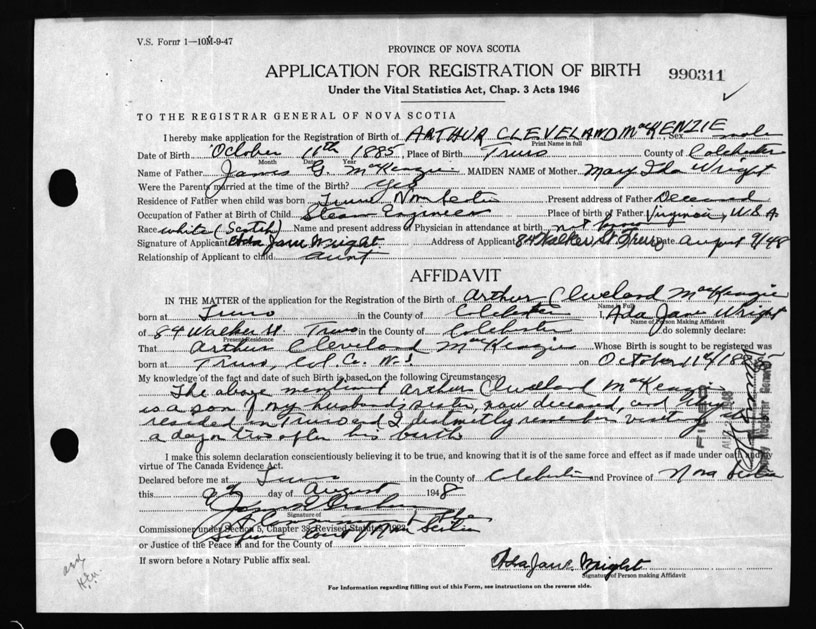 V.S. Form 1—10M-9-47
PROVINCE OF NOVA SCOTIA
APPLICATION FOR REGISTRATION OF BIRTH 990311
Under the Vital Statistics Act, Chap. 3 Acts 1946
TO THE REGISTRAR GENERAL OF NOVA SCOTIA
I hereby make application for the Registration of Birth of ARTHUR CLEVELAND MacKENZIE Sex male
Print Name in full
Date of Birth October 11th 1885, Place of Birth Truro County of Colchester
Month Day Year
Name of Father James G. MacKenzie MAIDEN NAME of Mother Mary Ida Wright
Were the Parents married at the time of the Birth? Yes
Residence of Father when child was born Truro Nova Scotia Present address of Father Deceased
Occupation of Father at Birth of Child Steam Engineer Place of birth of Father Virginia, U.S.A
Race white (Scotch) Name and present address of Physician in attendance at birth not know
Signature of Applicant Ada Jane Wright Address of Applicant 84 Walker St Truro Date August 9/48
Relationship of Applicant to child aunt
AFFIDAVIT
IN THE MATTER of the application for the Registration of the Birth of Arthur Cleveland MacKenzie
Name in Full
born at Truro in the County of Colchester I, Ada Jane Wright
Name of Person Making Affidavit
of 84 Walker St. Truro in the County of Colchester do solemnly declare:
Present Residence
That Arthur Cleveland MacKenzie Whose Birth is sought to be registered was
born at Truro, Col. Co. N.S. on October 11th 1885
My knowledge of the fact and date of such Birth is based on the following Circumstances:
The above mentioned Arthur Cleveland MacKenzie
is a son of my husband's sister, now deceased, and
resided in Truro and I distinctly remember visiting
a day or two after his birth
I make this solemn declaration conscientiously believing it to be true, and knowing that it is of the same force and effect as if made under oath and by
virtue of The Canada Evidence Act.
Declared before me at Truro in the County of Colchester and Province of Nova Scotia
this 9th day of August 1948
Signature of
Commissioner under Section 5, Chapter 38, Revised Statutes 1923
Supreme Court of Nova Scotia
or Justice of the Peace in and for the County of
If sworn before a Notary Public affix seal.
Ada Jane Wright
Signature of Person making Affidavit
For Information regarding filling out of this Form, see instructions on the reverse side.